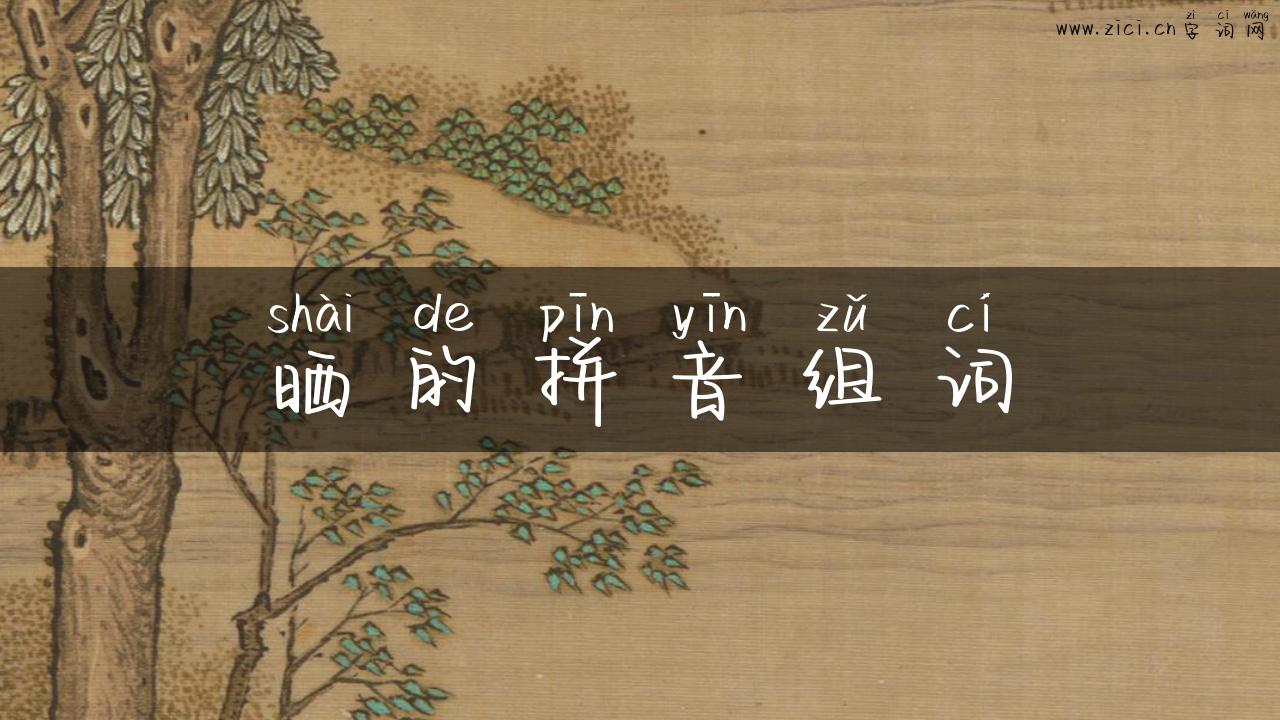 zì cí wǎng
www.zici.cn 字词网
shài de pīn yīn zǔ cí
晒的拼音组词